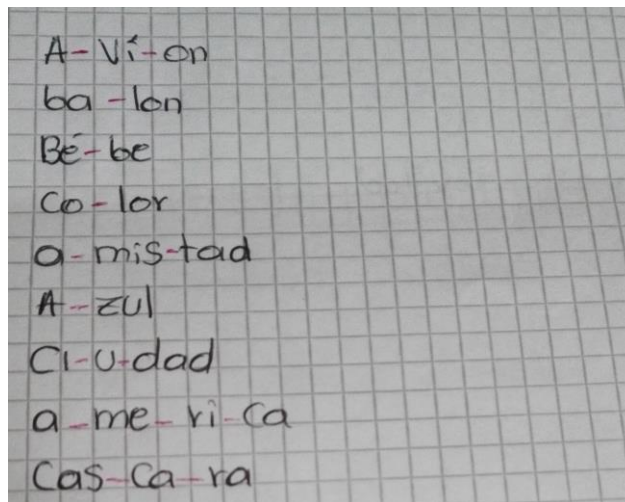 A-Ví-on
ba-lon
Bé-be
Co-lor
a-mis-tad
A-zul
Ci-u-dad
a-me-ri-ca
Cas-ca-ra